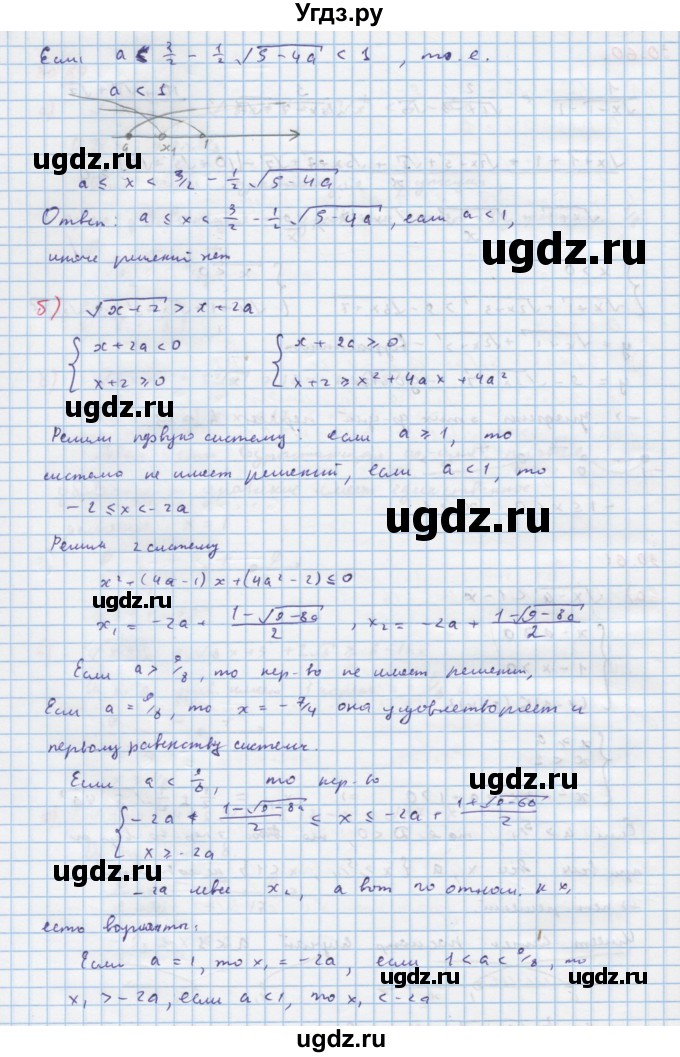 Угдз.ру
Если a < 3/2 - 1/2 √(5-4a) < 1, т. е.
a < 1
a x₁ 1
ugdz.ru ugdz.ru
a ≤ x < 3/2 - 1/2 √(5-4a)
Ответ: a ≤ x < 3/2 - 1/2 √(5-4a), если a < 1,
иначе решений нет
б) √(x+2) > x + 2a
{ x + 2a < 0 { x + 2a ≥ 0
{ x + 2 ≥ 0 { x + 2 ≥ x² + 4ax + 4a²
ugdz.ru
Решим первую систему: если a ≥ 1, то
система не имеет решений, если a < 1, то
-2 ≤ x < -2a
ugdz.ru
Решим 2 систему
x² + (4a-1)x + (4a²-2) ≤ 0
ugdz.ru
x₁ = -2a + (1-√(9-8a))/2 , x₂ = -2a + (1-√(9-8a))/2
Если a > 9/8, то нер-во не имеет решений,
Если a = 9/8, то x = -7/4 она удовлетворяет и
первому равенству систем.
ugdz.ru
Если a < 9/8, то нер-во
{ -2a + (1-√(9-8a))/2 ≤ x ≤ -2a + (1+√(9-8a))/2
{ x ≥ -2a
ugdz.ru
-2a левее x₂, а вот по отнош. к x₁
есть варианты:
Если a = 1, то x₁ = -2a, если 1 < a < 9/8, то
ugdz.ru ugdz.ru
x₁ > -2a, если a < 1, то x₁ < -2a
ugdz.ru